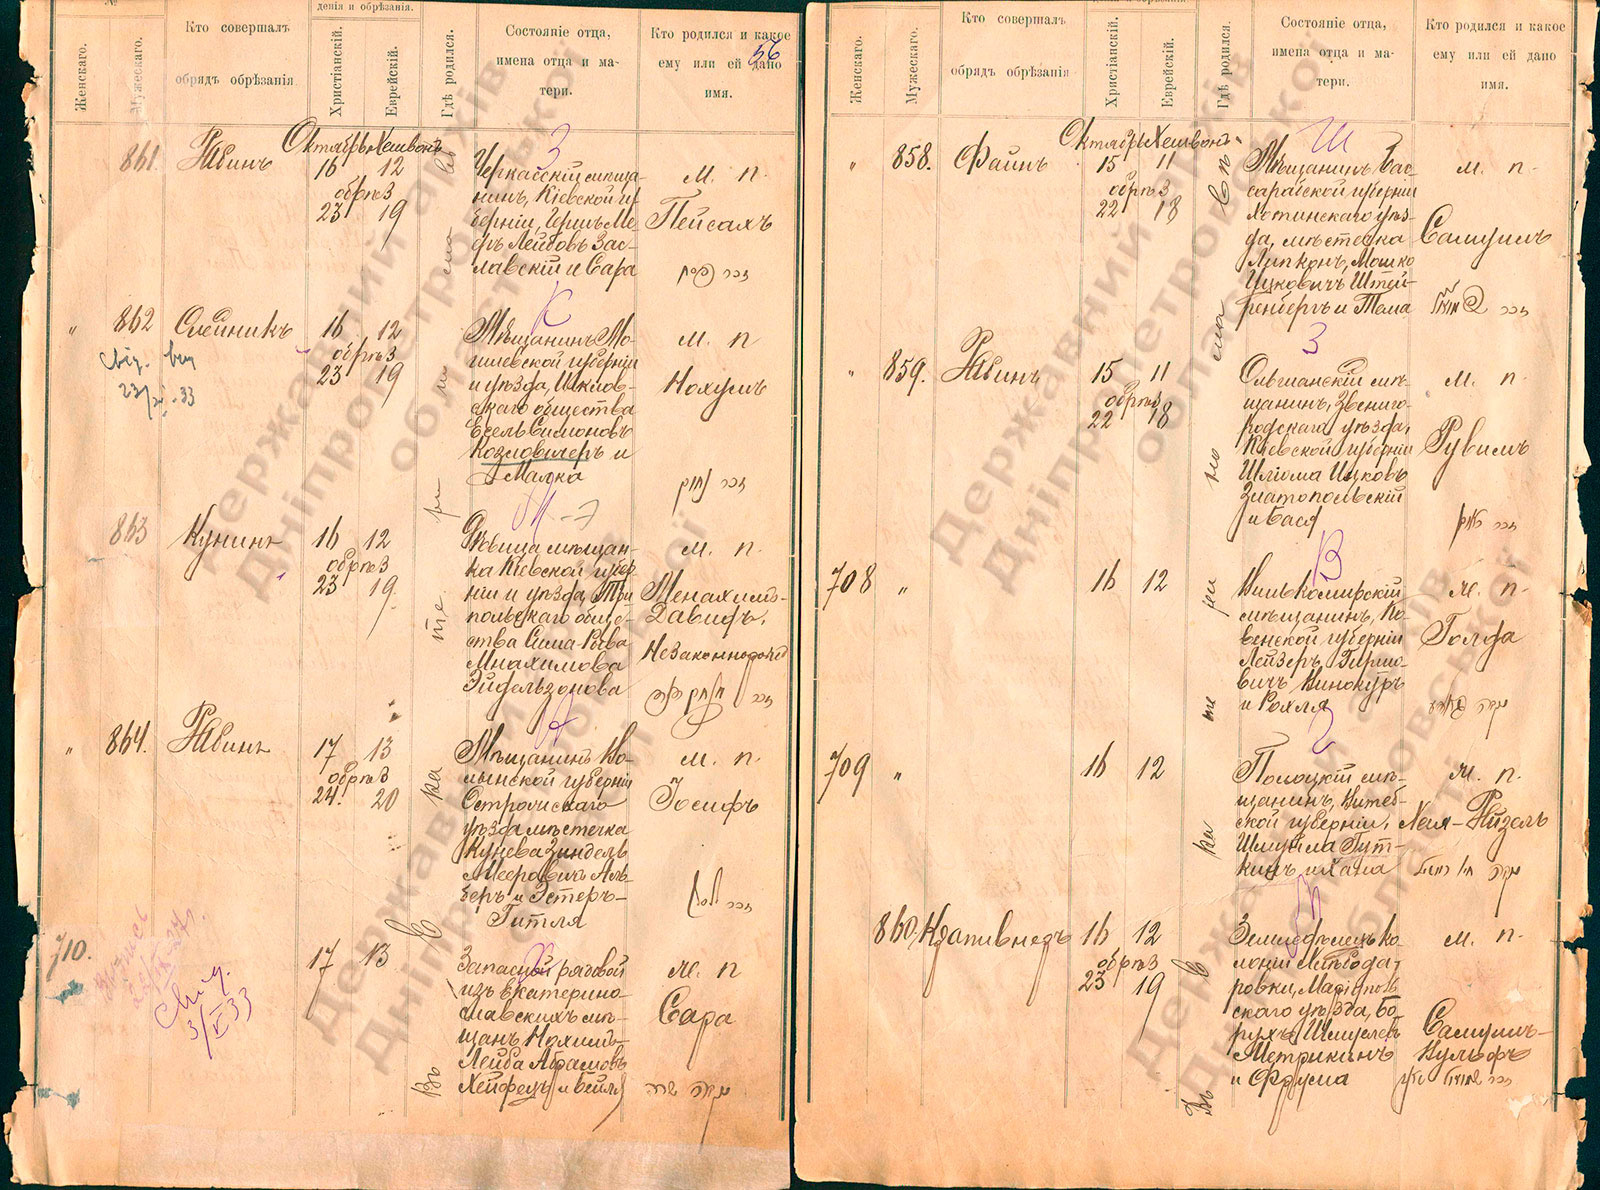 №
дѣнія и обрѣзанія.
Женскаго.
Мужескаго.
Кто совершалъ
обрядъ обрѣзанія
Христіанскій.
Еврейскій.
Гдѣ родился.
Состояніе отца,
имена отца и ма-
тери.
Кто родился и какое
ему или ей дано
имя.
56
Октябрь Хешвонъ
861.
Рабинъ
16 12
обрѣз
23 19
З
Черкасскій мѣща-
нинъ, Кіевской гу-
берніи, Гершъ Ме-
Лейбовъ Зас-
лавскій и Сара
м. п.
Пейсахъ
זכר פסח
" 862
Олейникъ
16 12
обрѣз
23 19
К
Мѣщанинъ Мо-
гилевской губерніи
и уѣзда, Шклов-
скаго общества
Есель Симоновъ
и
Малка
м. п
Нохумъ
זכר נחום
23/XI-33
863
Кунинъ
16 12
обрѣз
23 19.
Дѣвица мѣщан-
ка Кіевской губер-
ніи и уѣзда, Три
польскаго обще-
ства Сима-Рыва
Мнахимова
Эйдельзонова
м. п.
Менахимъ-
Давидъ,
Незаконнорожд
זכר
" 864.
Рабинъ
17 13
обрѣз
24. 20
А
Мѣщанинъ Во-
лынской губерніи
Острожскаго
уѣзда мѣстечка
Кунева Зиндель
Мееровичъ Аль-
беръ и Эстеръ-
Гитля
м. п.
Іосифъ
זכר יוסף
710.
17 13
Х
Запасный рядовой
изъ Екатерино-
славскихъ мѣ-
щанъ Нохимъ-
Лейба Абрамовъ
Хейфецъ и Бейля
м. п
Сара
נקבה שרה
3/VI 33
Въ Екатеринославѣ
Женскаго.
Мужескаго.
Кто совершалъ
обрядъ обрѣзанія
Христіанскій.
Еврейскій.
Гдѣ родился.
Состояніе отца,
имена отца и ма-
тери.
Кто родился и какое
ему или ей дано
имя.
Октябрь Хешвонъ
" 858.
Файнъ
15 11
обрѣз
22 18
Ш
Мѣщанинъ, Бес-
сарабской губерніи
Хотинскаго уѣз-
да, мѣстечка
Липконъ, Мошко
Ицковичъ Штей-
ренбергъ и Тема
м. п.
Самуилъ
זכר שמואל
" 859.
Рабинъ
15 11
обрѣз
22 18
З
Ольшанскій мѣ-
щанинъ, Звениго-
родскаго уѣзда,
Кіевской губерніи
Шліома Ицковъ
Златопольскій
и Бася
м. п
Рувимъ
זכר ראובן
708 "
16 12
В
Вилькомирскій
мѣщанинъ, Ко-
венской губерніи
Лейзеръ Гиршо-
вичъ Винокуръ
и Рохля
ж. п.
Голда
נקבה
709 "
16 12
Г
Полоцкій мѣ-
щанинъ, Витеб-
ской губерніи,
Шмуила Гут-
кинъ и Хана
ж. п.
Хея-Рейзель
נקבה
860.
Крапивнеръ
16 12
обрѣз
23 19
М
Земледѣлецъ ко-
лоніи Мѣжода-
ровки, Маріуполь
скаго уѣзда, Бо-
рухъ Шмуелевъ
Метрикинъ
и Фрума
м. п.
Самуилъ-
Вульфъ
זכר שמואל
Въ Екатеринославѣ
Державний архів
Дніпропетровської
області